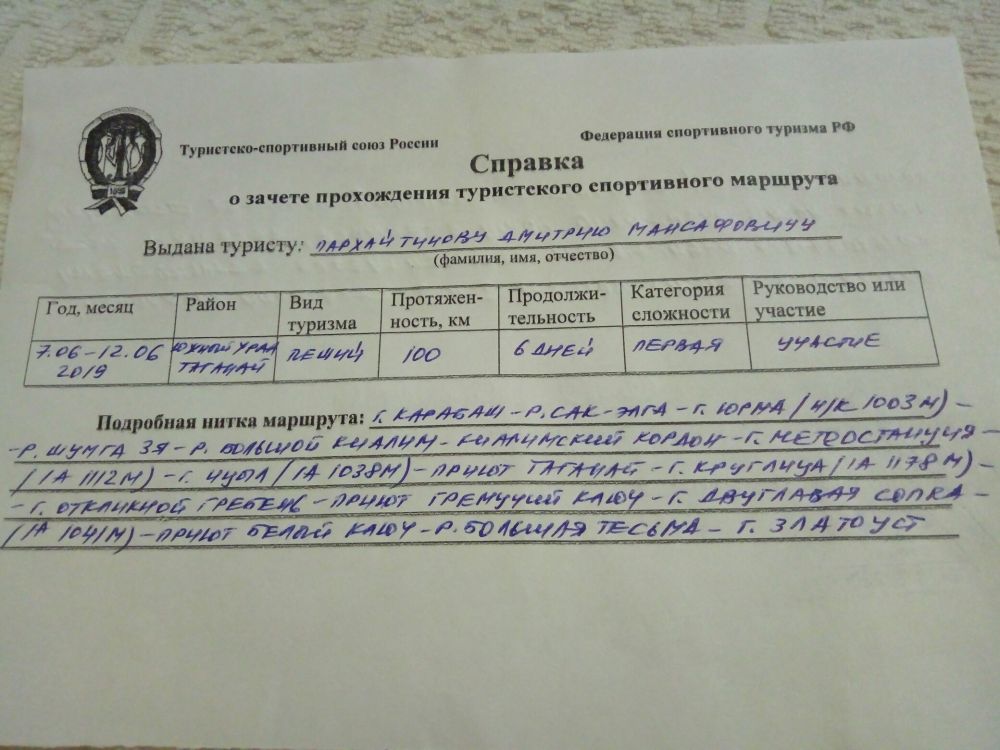 Туристско-спортивный союз России Федерация спортивного туризма РФ
Справка
о зачете прохождения туристского спортивного маршрута
Выдана туристу: ПАРХАЙТИНОВУ ДМИТРИЮ МАНСАФОВИЧУ
(фамилия, имя, отчество)
Год, месяц Район Вид туризма Протяжен-ность, км Продолжи-тельность Категория сложности Руководство или участие
7.06-12.06 2019 ЮЖНЫЙ УРАЛ ТАГАНАЙ ПЕШИЙ 100 6 ДНЕЙ ПЕРВАЯ УЧАСТИЕ
Подробная нитка маршрута: Г. КАРАБАШ - Р. САК-ЭЛГА - Г. ЮРМА (Н/К 1003 М) -
- Р. ШУМГА 3Я - Р. БОЛЬШОЙ КИАЛИМ - КИАЛИМСКИЙ КОРДОН - Г. МЕТЕОСТАНЦИЯ -
(1А 1112 М) - Г. ИЦЫЛ (1А 1038 М) - ПРИЮТ ТАГАНАЙ - Г. КРУГЛИЦА (1А 1178 М) -
- Г. ОТКЛИКНОЙ ГРЕБЕНЬ - ПРИЮТ ГРЕМУЧИЙ КЛЮЧ - Г. ДВУГЛАВАЯ СОПКА -
(1А 1041 М) - ПРИЮТ БЕЛЫЙ КЛЮЧ - Р. БОЛЬШАЯ ТЕСЬМА - Г. ЗЛАТОУСТ